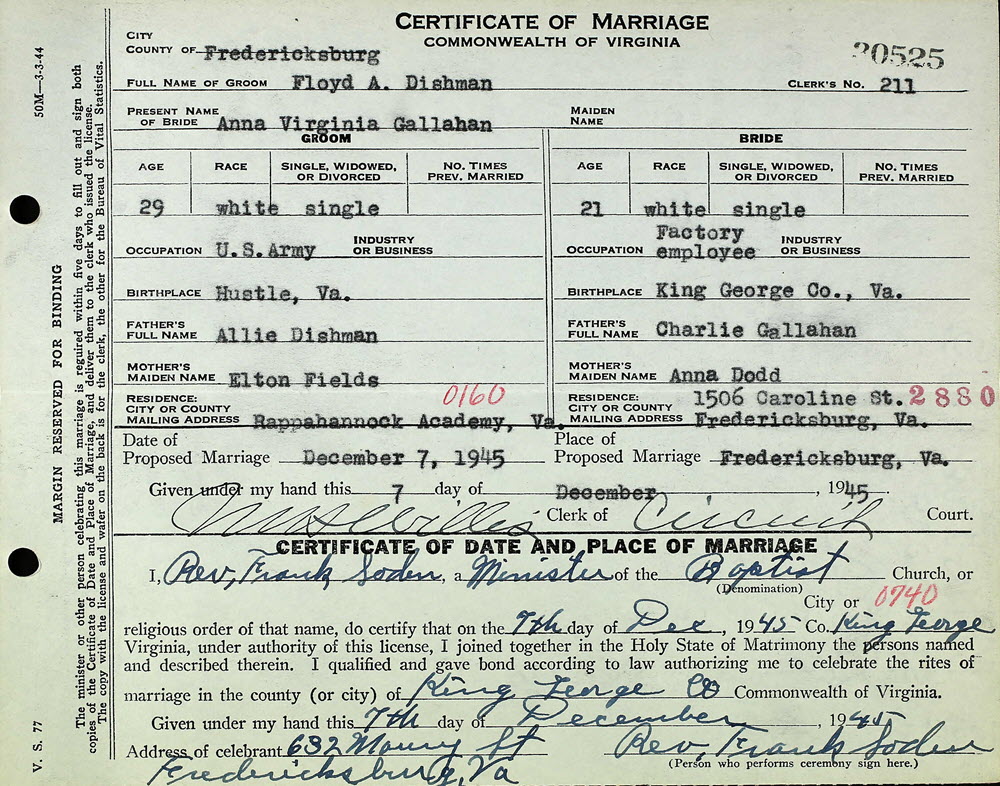 CERTIFICATE OF MARRIAGE
COMMONWEALTH OF VIRGINIA
CITY
COUNTY OF Fredericksburg
20525
FULL NAME OF GROOM Floyd A. Dishman CLERK'S NO. 211
PRESENT NAME OF BRIDE Anna Virginia Gallahan MAIDEN NAME
GROOM BRIDE
AGE RACE SINGLE, WIDOWED, OR DIVORCED NO. TIMES PREV. MARRIED AGE RACE SINGLE, WIDOWED, OR DIVORCED NO. TIMES PREV. MARRIED
29 white single 21 white single
OCCUPATION U.S.Army INDUSTRY OR BUSINESS OCCUPATION Factory employee INDUSTRY OR BUSINESS
BIRTHPLACE Hustle, Va. BIRTHPLACE King George Co., Va.
FATHER'S FULL NAME Allie Dishman FATHER'S FULL NAME Charlie Gallahan
MOTHER'S MAIDEN NAME Elton Fields MOTHER'S MAIDEN NAME Anna Dodd
0160
RESIDENCE: CITY OR COUNTY MAILING ADDRESS Rappahannock Academy, Va. RESIDENCE: CITY OR COUNTY MAILING ADDRESS 1506 Caroline St. Fredericksburg, Va.
2880
Date of Proposed Marriage December 7, 1945 Place of Proposed Marriage Fredericksburg, Va.
Given under my hand this 7 day of December, 1945.
Willis Clerk of Circuit Court.
CERTIFICATE OF DATE AND PLACE OF MARRIAGE
I, Rev, Frank Soden, a Minister of the Baptist Church, or
(Denomination)
City or 0740
religious order of that name, do certify that on the 7th day of Dec, 1945 Co. King George
Virginia, under authority of this license, I joined together in the Holy State of Matrimony the persons named
and described therein. I qualified and gave bond according to law authorizing me to celebrate the rites of
marriage in the county (or city) of King George Co Commonwealth of Virginia.
Given under my hand this 7th day of December, 1945
Address of celebrant 632 Maury St Rev, Frank Soden
Fredericksburg, Va (Person who performs ceremony sign here.)
50M—3-3-44
MARGIN RESERVED FOR BINDING
V. S. 77
The minister or other person celebrating this marriage is required within five days to fill out and sign both
copies of the Certificate of Date and Place of Marriage, and deliver them to the clerk who issued the license.
The copy with the license and wafer on the back is for the clerk, the other for the Bureau of Vital Statistics.